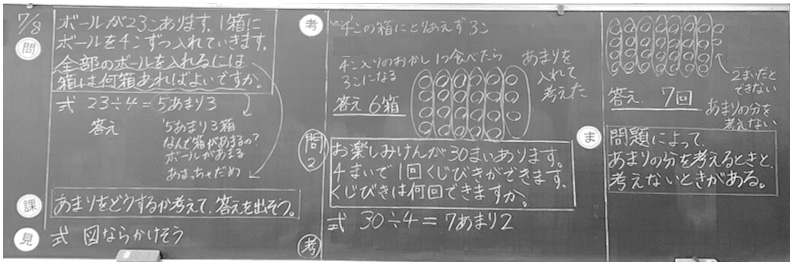 7/8
問
ボールが23こあります。1箱に
ボールを4こずつ入れていきます。
全部のボールを入れるには
箱は何箱あればよいですか。
式 23÷4=5あまり3
答え
5あまり3箱
なんで箱があまるの?
ボールがあまる
あまっちゃだめ
課
あまりをどうするか考えて、答えを出そう。
見
式 図ならかけそう
考
4この箱にとりあえず3こ
4こ入りのおかし 1つ食べたら
3こになる
あまりを
入れて
考えた
答え 6箱
問2
お楽しみけんが30まいあります。
4まいで1回くじびきができます。
くじびきは何回できますか。
式 30÷4=7あまり2
考
2まいだと
できない
答え 7回
あまりの分を
考えない
ま
問題によって
あまりの分を考えるときと、
考えないときがある。